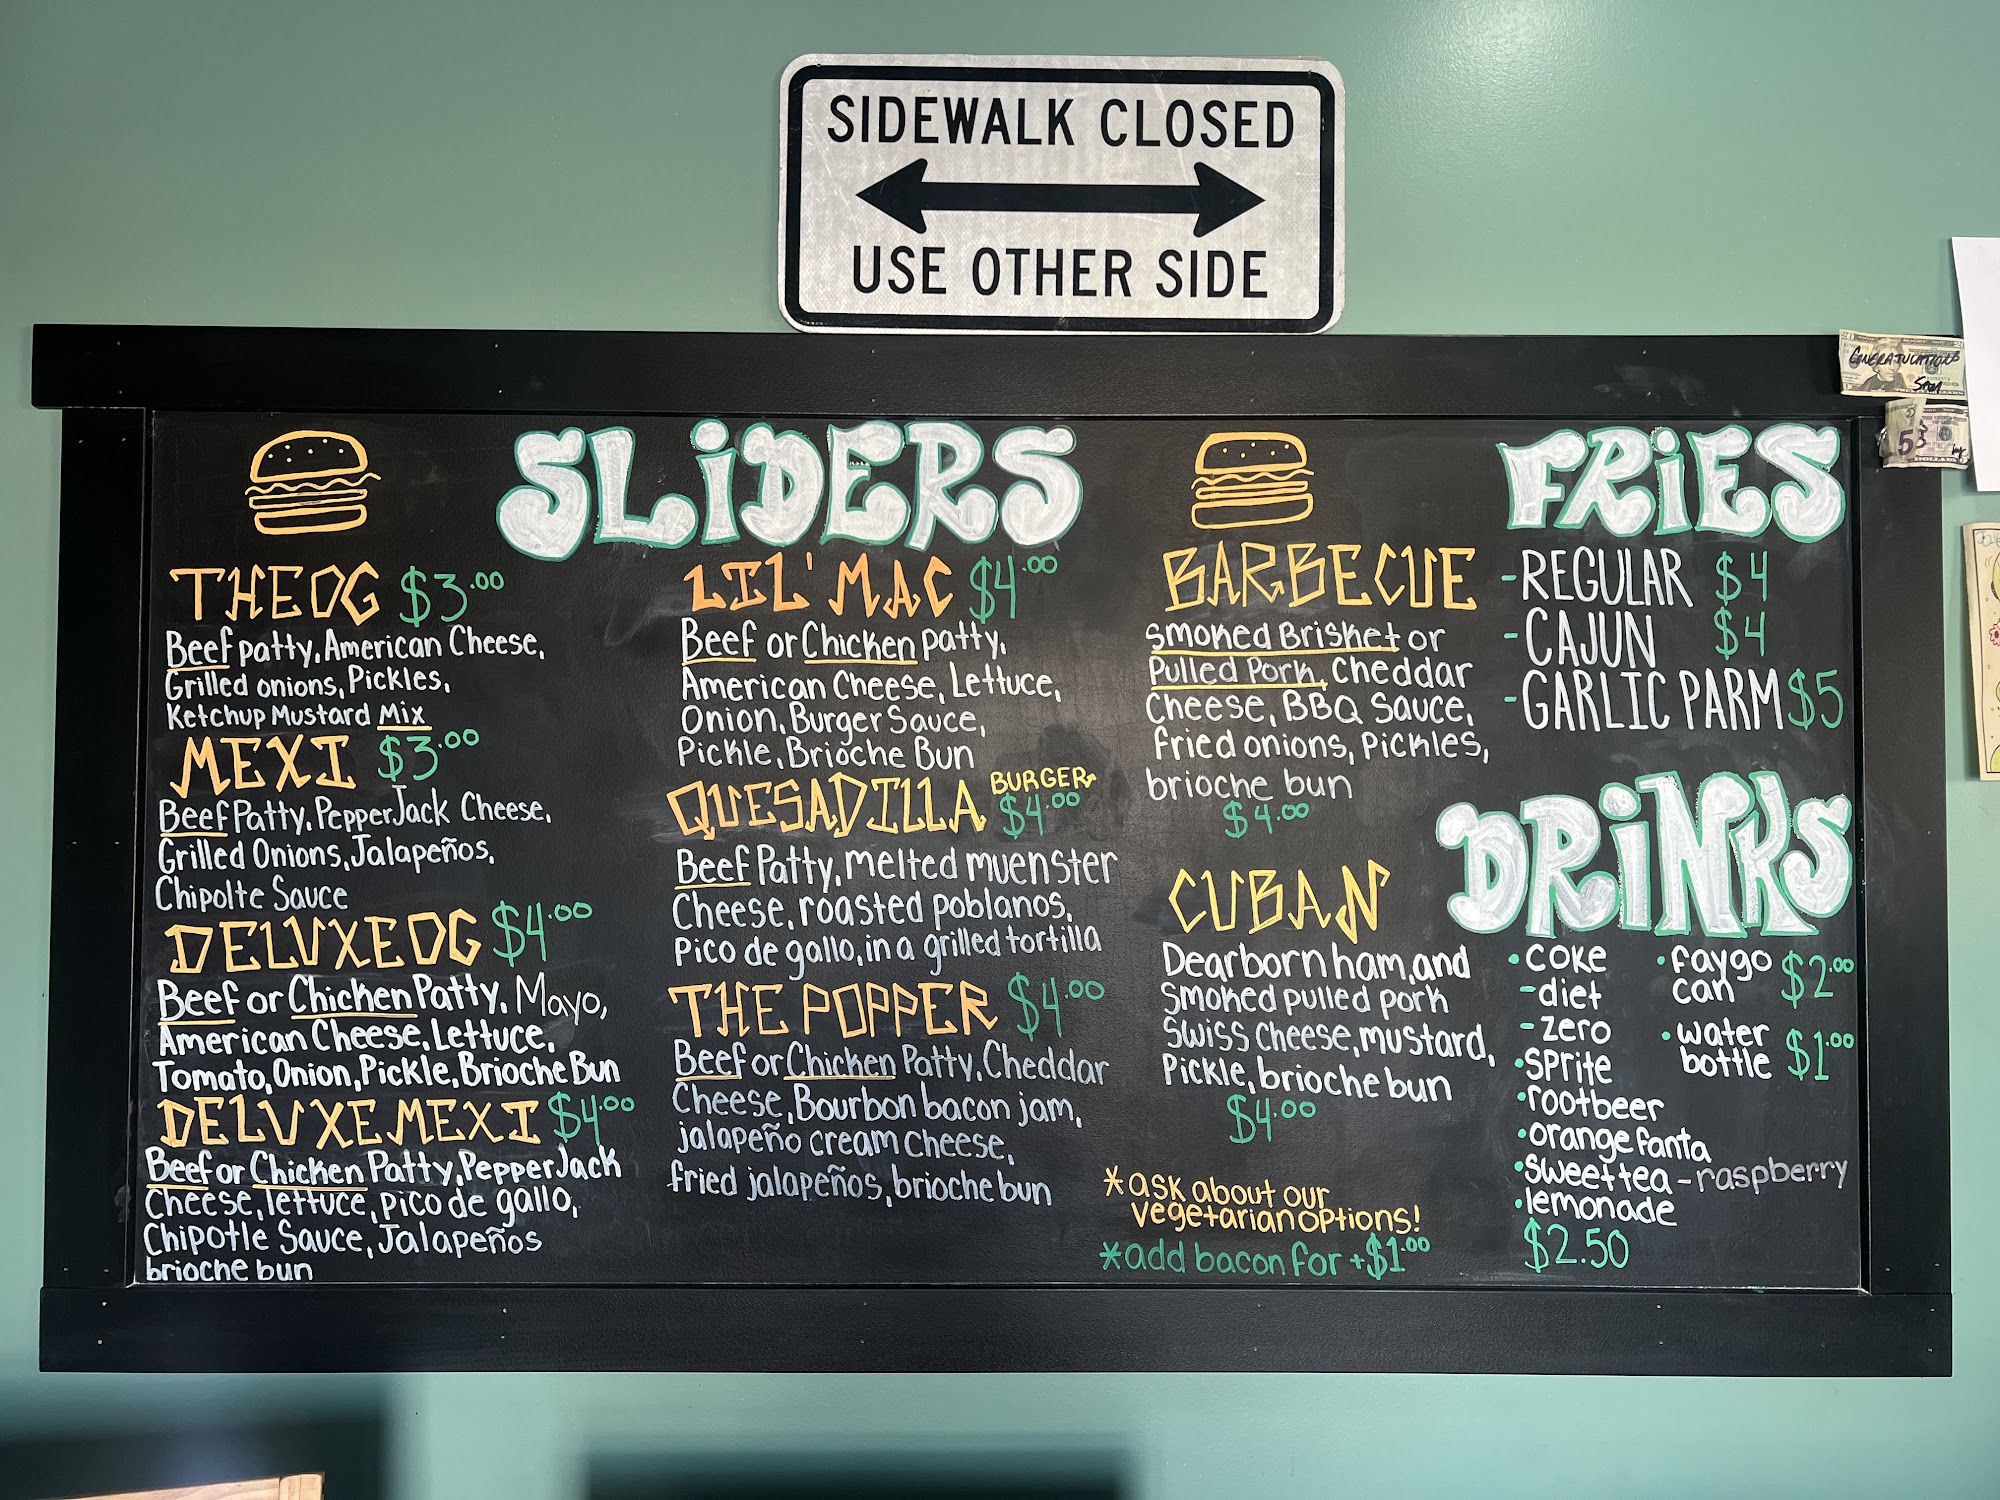 SIDEWALK CLOSED
USE OTHER SIDE
CONGRATULATIONS
SLiDERS
THE OG $3.00
Beef patty, American Cheese,
Grilled onions, Pickles,
Ketchup Mustard Mix
MEXI $3.00
Beef Patty, PepperJack Cheese,
Grilled Onions, Jalapeños,
Chipolte Sauce
DELUXE OG $4.00
Beef or Chicken Patty, Mayo,
American Cheese, Lettuce,
Tomato, Onion, Pickle, Brioche Bun
DELUXE MEXI $4.00
Beef or Chicken Patty, PepperJack
Cheese, lettuce, pico de gallo,
Chipotle Sauce, Jalapeños
brioche bun
LIL' MAC $4.00
Beef or Chicken patty,
American Cheese, Lettuce,
Onion, Burger Sauce,
Pickle, Brioche Bun
QUESADILLA BURGER
$4.00
Beef Patty, melted muenster
Cheese, roasted poblanos,
Pico de gallo, in a grilled tortilla
THE POPPER $4.00
Beef or Chicken Patty, Cheddar
Cheese, Bourbon bacon jam,
jalapeño cream cheese,
fried jalapeños, brioche bun
BARBECUE
Smoked Brisket or
Pulled Pork, Cheddar
Cheese, BBQ Sauce,
Fried onions, Pickles,
brioche bun
$4.00
CUBAN
Dearborn ham, and
Smoked pulled pork
Swiss Cheese, mustard,
Pickle, brioche bun
$4.00
*ask about our
vegetarian options!
*add bacon for +$1.00
FRiES
-REGULAR $4
-CAJUN $4
-GARLIC PARM $5
DRiNKS
• coke
-diet
-zero
• sprite
• rootbeer
• orange fanta
• sweet tea - raspberry
• lemonade
$2.50
• faygo
can $2.00
• water
bottle $1.00